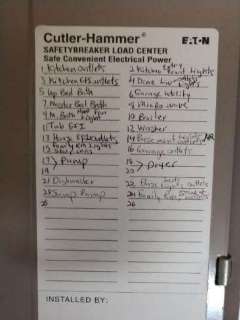 Cutler-Hammer® EATON
SAFETYBREAKER LOAD CENTER
Safe Convenient Electrical Power
1 Kitchen outlets
2 Kitchen Lights
3 Kitchen outlets
4 Lights
5 Up Bed Bath
6 Garage utility
7 Master Bed Bath
8 Microwave
9 M. Bath Light
10 Boiler
11 Tub GFI
12 Washer
13 outlets
14 Basement outlets
15 Family Rm Lights
16 Garage outlets
17 > Pump
18 > Dryer
19
20
21 Dishwasher
22 Lights, outlets
23 Sump Pump
24 Family Room outlets
25
26
INSTALLED BY: